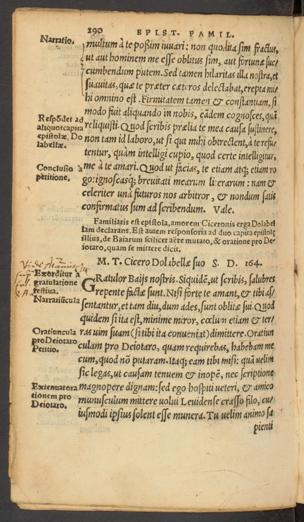 290 EPIST. FAMIL.
Narratio.
multum à te possim iuuari: non quod ita sim fractus,
ut aut hominem me esse oblitus sim, aut fortunæ suc
cumbendum putem. Sed tamen hilaritas illa nostra, et
suauitas, quæ te præter cæteros delectabat, erepta mi
hi omnino est. Firmitatem tamen & constantiam, si
modo fuit aliquando in nobis, eādem cognosces, quā
reliquisti. Quod scribis prælia te mea causa sustinere,
non tam id laboro, ut si qui mihi obtrectent, à te refu
tentur, quàm intelligi cupio, quod certe intelligitur,
me à te amari. Quod ut facias, te etiam atq; etiam ro
go: ignoscasq; breuitati mearum literarum: nam &
celeriter unà futuros nos arbitror, & nondum satis
confirmatus sum ad scribendum. Vale.
Respōdet ad
aliquot capita
epistolæ Do
labellæ.
Conclusio à
petitione.
Familiaris est epistola, amorem Ciceronis erga Dolabel
lam declarans. Est autem responsoria ad duo capita epistolę
illius, de Baiarum scilicet aëre mutato, & oratione pro De
iotaro, quam se mittere dicit.
M. T. Cicero Dolabellæ suo S. D. 164.
Exorditur à
gratulatione
festiua.
Narratiūcula
GRatulor Baijs nostris. Siquidē, ut scribis, salubres
repente factæ sunt. Nisi forte te amant, & tibi as
sentantur, et tam diu, dum ades, sunt oblitæ sui. Quod
quidem si ita est, minime miror, cœlum etiam & ter
ras uim suam (si tibi ita conueniat) dimittere. Oratiun
culam pro Deiotaro, quam requirebas, habebam me
cum, quod nō putaram. Itaq; eam tibi misi: quā uelim
sic legas, ut causam tenuem & inopē, nec scriptione
magnopere dignam: sed ego hospiti ueteri, & amico
munusculum mittere uolui Leuidense crasso filo, cu
iusmodi ipsius solent esse munera. Tu uelim animo sa
Oratiuncula
pro Deiotaro
Petitio.
Extenuat ora
tionem pro
Deiotaro.
pienti